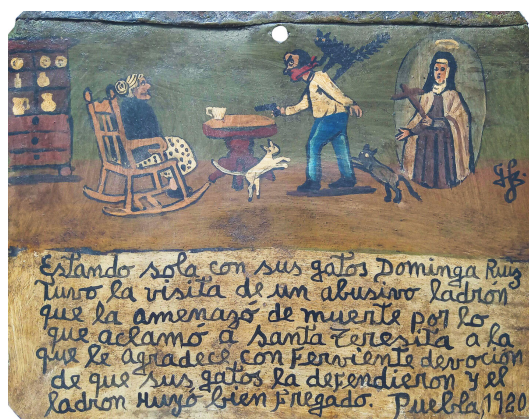 Estando sola con sus gatos Dominga Ruiz
Tuvo la visita de un abusivo ladrón
que la amenazó de muerte por lo
que aclamó a santa Teresita a la
que le agradece con ferviente devoción
de que sus gatos la defendieron y el
ladron Huyó bien fregado. Puebla, 1920